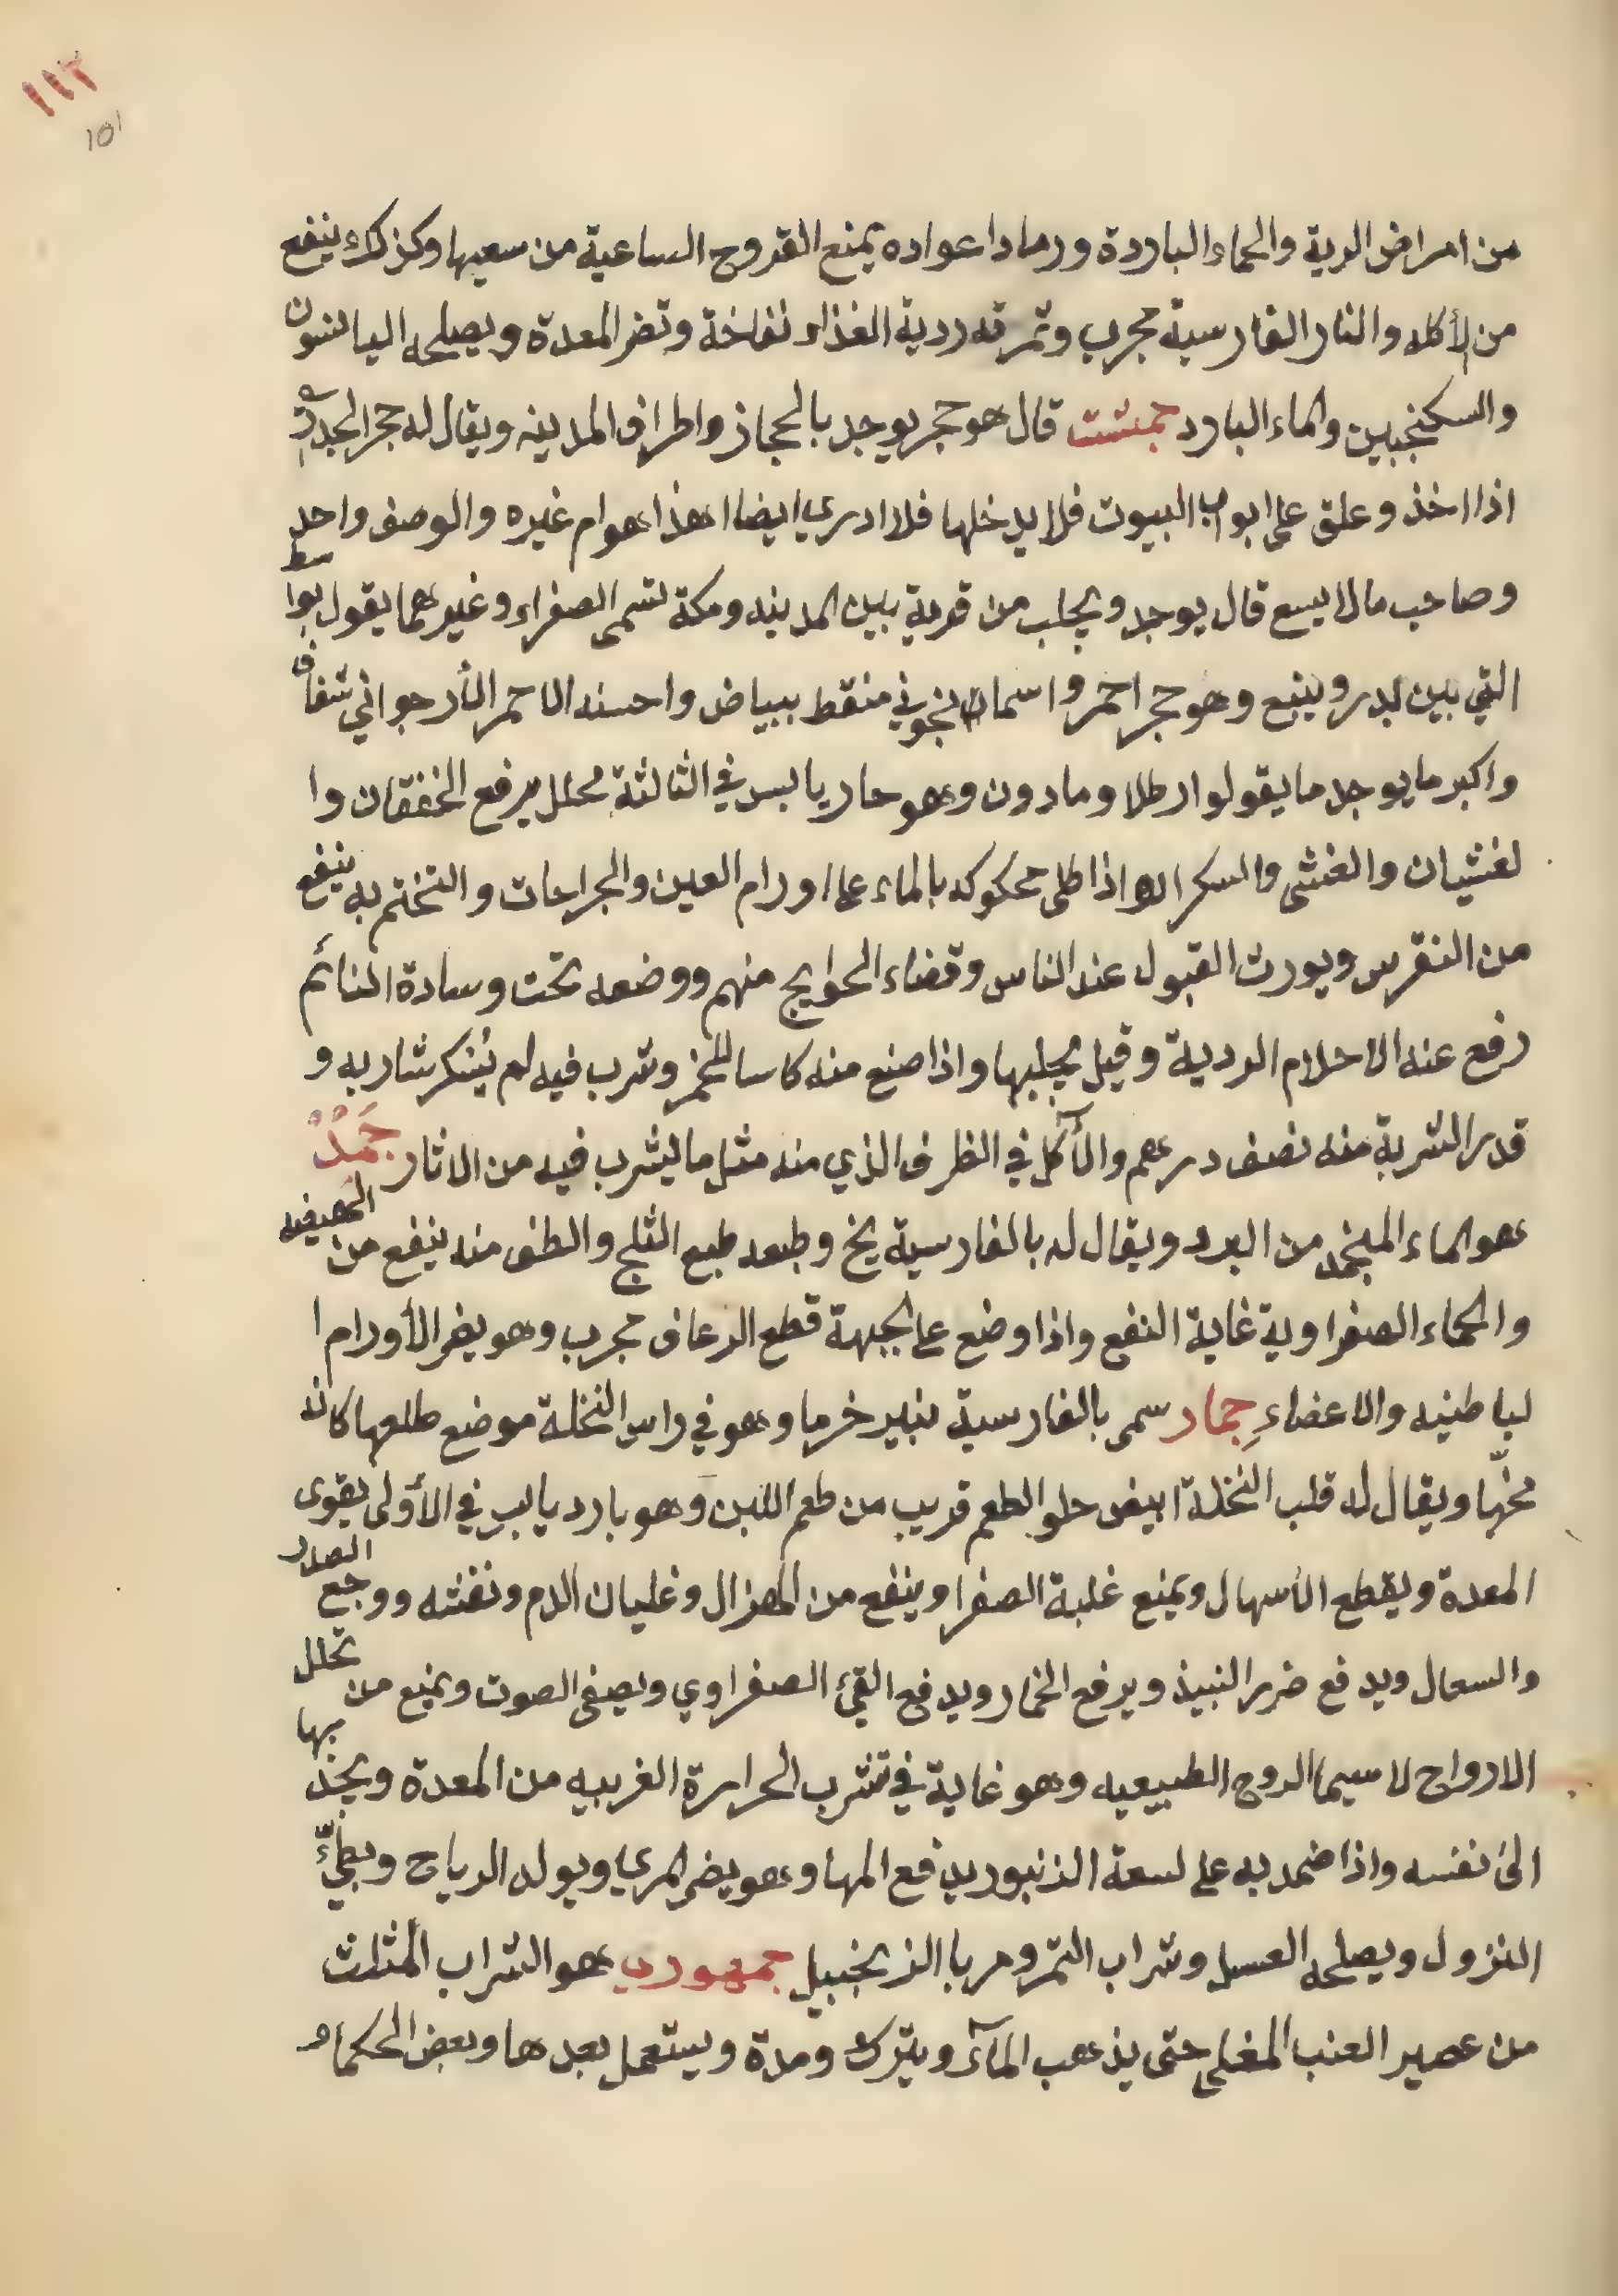 ١١٢
١٥١
من امراض الرية والحماء الباردة ورماد اعواده يمنع القروح الساعية من سعيها وكذلك ينفع
من الأكله والنار الفارسية مجرب وثمرته ردية الغذاء نفاخة وتضر المعدة ويصلحه اليانسون
والسكنجبين والماء البارد جمشت قال هو حجر يوجد بالحجاز واطراف المدينه ويقال له حجر
اذا اخذ وعلق على ابواب البيوت فلا يدخلها فلا ادري ايضا اهذا هو ام غيره والوصف واحد
وصاحب مالا يسع قال يوجد ويجلب من قرية بين المدينه ومكة تسمى الصفراء وغيرهما يقول بواسط
التي بين بدر وينبع وهو حجر احمر واسمانجوني منقط ببياض واحسنه الاحمر الأرجواني شفاف
واكبر ما يوجد ما يقولوا رطلا وما دون وهو حار يابس في الثالثة محلل يرفع الخفقان وا
لغثيان والغشى والسكر اذا طلى محكوكه بالماء على اورام العين والجراحات والتختم به ينفع
من النقرس ويورث القبول عند الناس وقضاء الحوايج منهم ووضعه تحت وسادة النائم
رفع عنه الاحلام الردية وقيل يجلبها واذا صنع منه كاسا للخمر وشرب فيه لم يُسكر شاربه و
قدر الشربة منه نصف درهم والأكل في الظرف الذي منه مثل ما ليشرب فيه من الاثار جَمَدٌ
هو الماء المنجمد من البرد ويقال له بالفارسية يخ وطبعه طبع الثلج والطف منه ينفع من الهيضه
والحماء الصفراوية غاية النفع واذا وضع على الجبهة قطع الرعاف مجرب وهو يضر الأورام ا
لباطنيه والاعضاء جِمار سمى بالفارسية بنير خرما وهو في راس النخلة موضع طلعها كانه
مخّها ويقال له قلب النخلة ابيض حلو الطعم قريب من طعم اللبن وهو بارد يابس في الأولى يقوى
المعدة ويقطع الأسهال ويمنع غلبة الصفرا وينفع من الهزال وغليان الدم ونفثه ووجع الصدر
والسعال ويدفع ضرر النبيذ ويرفع الخمار ويدفع القئ الصفراوي ويصفى الصوت ويمنع من تحلل
الارواح لاسيما الروح الطبيعيه وهو غاية في تشرب الحرارة الغريبه من المعدة ويجذبها
الى نفسه واذا ضمد به على لسعة الزنبور يدفع المها وهو يضر المري ويولد الرياح وبطئّ
النزول ويصلحه العسل وشراب التمر ومربا الزنجبيل جمهوري هو الشراب المثلث
من عصير العنب المغلى حتى يذهب المآء ويترك ومدة ويستعمل بعدها وبعض الحكماء